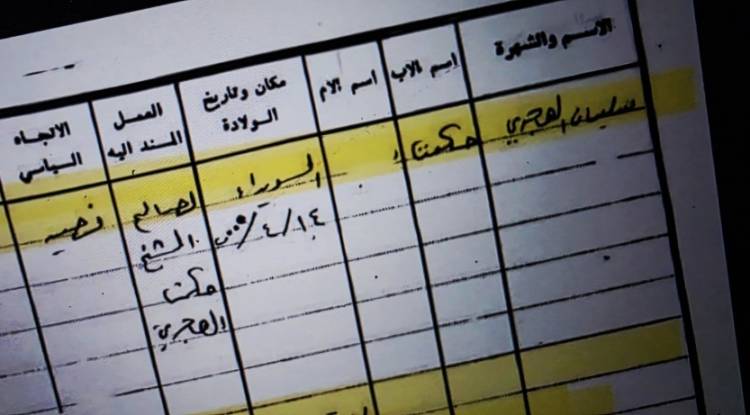 الاسم والشهرة
اسم الاب
اسم الام
مكان وتاريخ
الولادة
العمل
المسند اليه
الاتجاه
السياسي
سليمان الهجري
حكمت
السويداء
١٤/٤/
لصالح
الشيخ
حكمت
الهجري